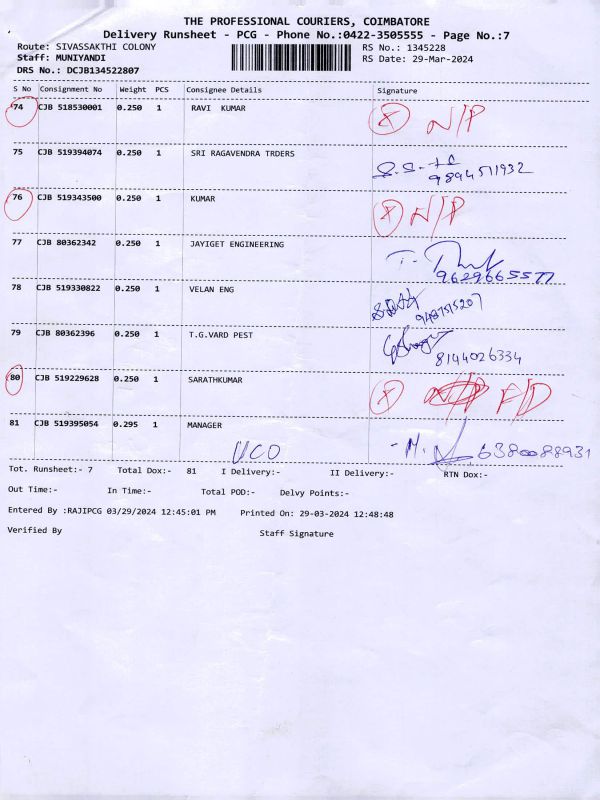 THE PROFESSIONAL COURIERS, COIMBATORE
Delivery Runsheet - PCG - Phone No.:0422-3505555 - Page No.:7
Route: SIVASSAKTHI COLONY RS No.: 1345228
Staff: MUNIYANDI RS Date: 29-Mar-2024
DRS No.: DCJB134522807
S No Consignment No Weight PCS Consignee Details Signature
74 CJB 518530001 0.250 1 RAVI KUMAR X N/P
75 CJB 519394074 0.250 1 SRI RAGAVENDRA TRDERS
9894511932
76 CJB 519343500 0.250 1 KUMAR X N/P
77 CJB 80362342 0.250 1 JAYIGET ENGINEERING
9629665577
78 CJB 519330822 0.250 1 VELAN ENG
79 CJB 80362396 0.250 1 T.G.VARD PEST
8144026334
80 CJB 519229628 0.250 1 SARATHKUMAR X F/D
81 CJB 519395054 0.295 1 MANAGER
UCO 6380088931
Tot. Runsheet:- 7 Total Dox:- 81 I Delivery:- II Delivery:- RTN Dox:-
Out Time:- In Time:- Total POD:- Delvy Points:-
Entered By :RAJIPCG 03/29/2024 12:45:01 PM Printed On: 29-03-2024 12:48:48
Verified By Staff Signature